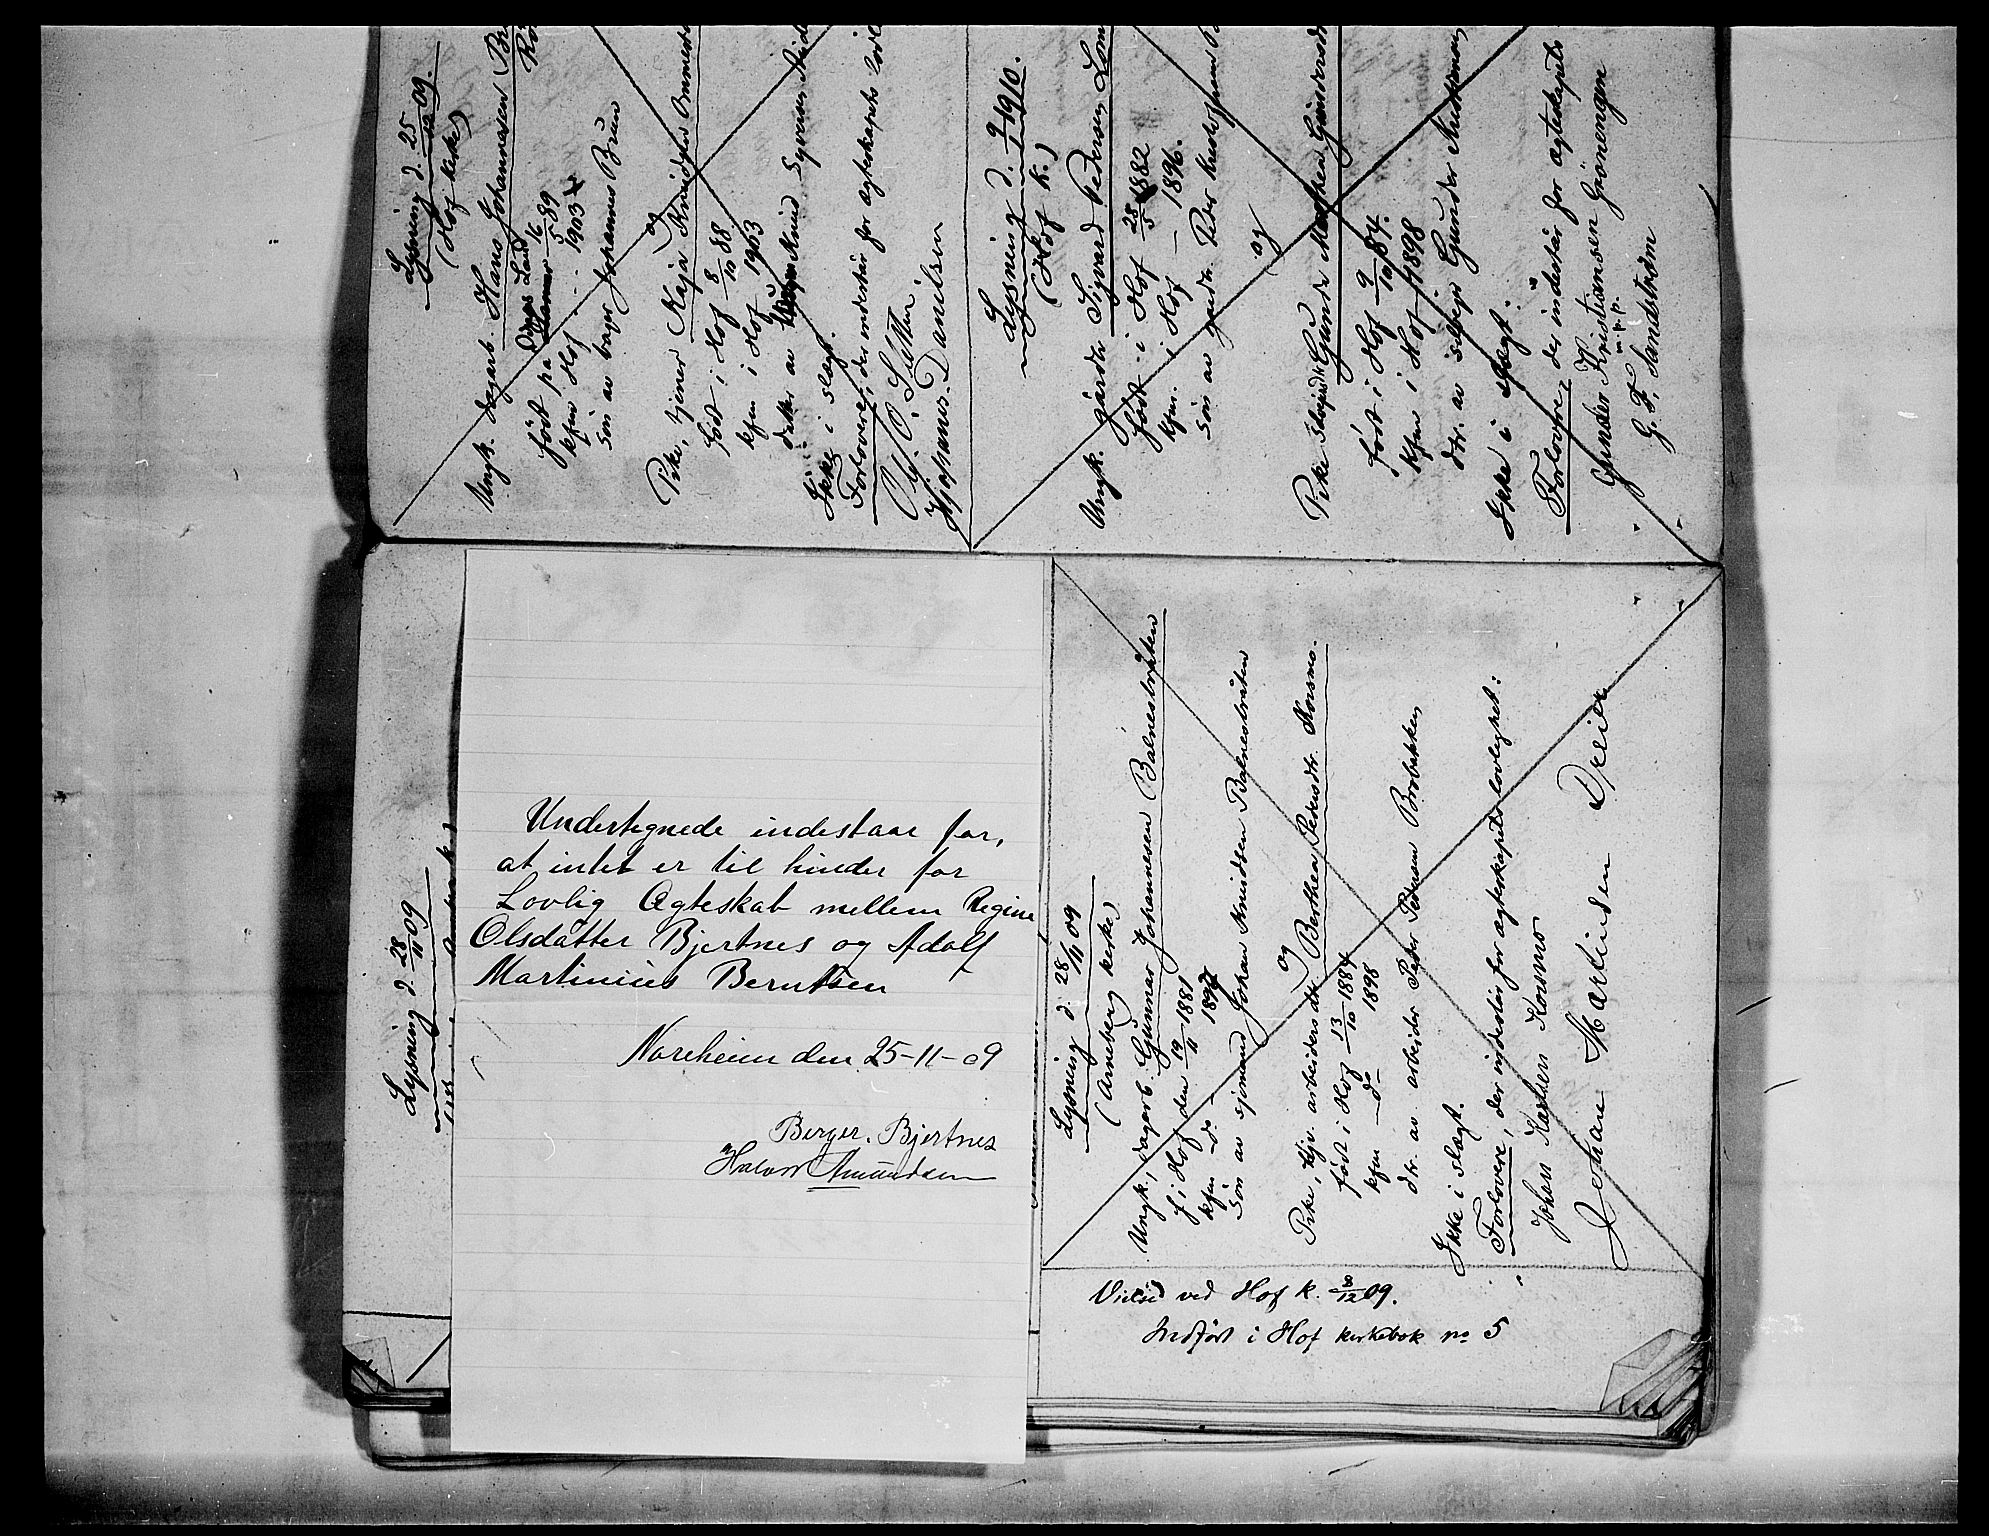 Lysning d. 25/12 09.
(Hof kirke)
Ungk. dagarb. Hans Johannesen
født på 16/5 89
kfm Hof - - 1903
søn av bager Johannes Brun
og
Pike, tjener Kaja Knudsdtr.
født i Hof 8/10 88
kfm i Hof 1903
datter av Knud Syversen
Ikke i slægt.
Forlovere, der indestår for egteskapets
Ole O. Sæther
Hjalmar Danielsen
Lysning d. 9/1 1910.
(Hof k.)
Ungk. gårdbr Sigvard Pedersen
født i Hof 25/5 1882
kfm. i Hof — 1896.
Søn av gaardbr. Peder
og
Pike Gunda
født i Hof 9/10 84.
kfm i Hof 1898
dtr. av selvejer Gunder
Ikke i slægt.
Forlovere, der indestår for egteskapets
Gunder Kristiansen Grönengen
m.p.p.
G. F. Sandström
Lysning d. 28/11 09
Undertegnede indestaar for,
at intet er til hinder for
Lovlig Ægteskab mellem Regine
Olsdatter Bjertnes og Adolf
Martinius Berntsen
Noreheim den 25-11-09
Berger. Bjertnes
Halvor Amundsen
Lysning d 28/11 09
(Arneberg kirke)
Ungk., dagarb. Gunnar Johannesen Balnestråten
f i Hof den 19/11 1881
kfm - do - 1897
Søn av sjømand Johan Knudsen Balnestråten
og
Pike, hjv. arbeiders dtr. Berthea Pedersdtr. Kovsmo.
født i Hof 13/10 1884
kfm — do 1898
dtr. av arbeider Peder Pedersen Brobakken
Ikke i slægt.
Forlovere, der indestår for egteskapets lovlighet:
Johan Karlsen Kovsmo
Johan Martinsen Dreier
Viet ved Hof k. 8/12 09.
Indført i Hof kirkebok no 5